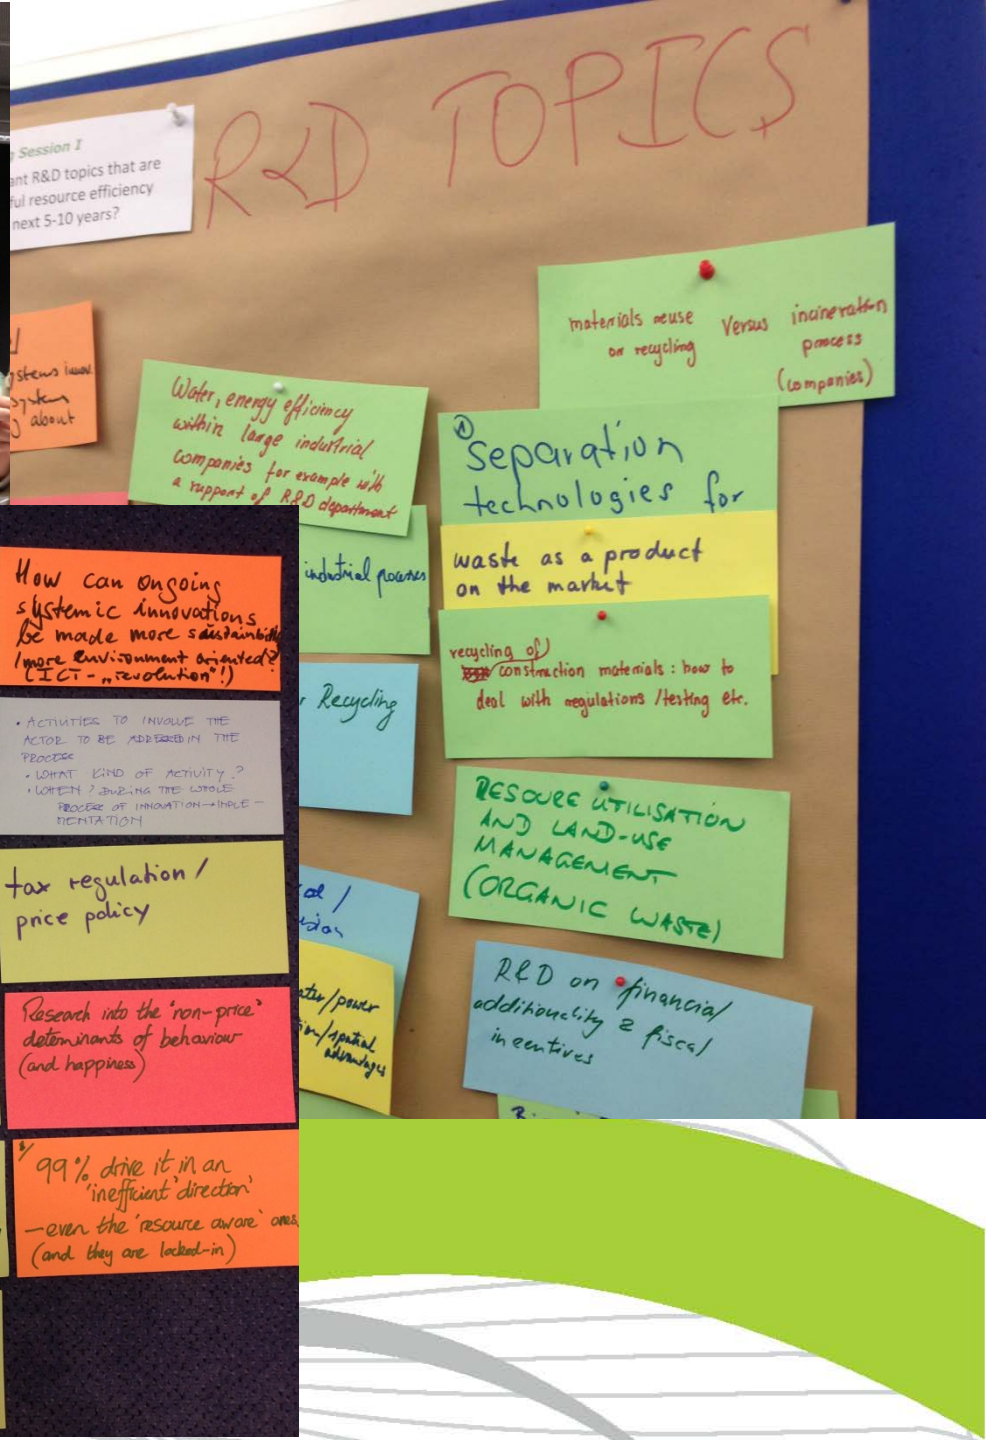 R&D TOPICS
Session I
ant R&D topics that are
ful resource efficiency
next 5-10 years?
materials reuse
or recycling
versus
incineration
process
(companies)
stems innov.
system
about
Water, energy efficiency
within large industrial
companies for example with
a support of R&D department
①
Separation
technologies for
industrial processes
waste as a product
on the market
recycling of
construction materials: how to
deal with regulations /testing etc.
Recycling
RESOURE UTILISATION
AND LAND-USE
MANAGEMENT
(ORGANIC WASTE)
R&D on financial
additionality & fiscal
incentives
/power
/spatial
advantages
How can ongoing
systemic innovations
be made more sustainable
/more environment oriented?
(ICT - „revolution"!)
• ACTIVITIES TO INVOLVE THE
ACTOR TO BE ADDRESSED IN THE
PROCESS
• WHAT KIND OF ACTIVITY?
• WHEN? DURING THE WHOLE
PROCESS OF INNOVATION → IMPLE-
MENTATION
tax regulation /
price policy
Research into the 'non-price'
determinants of behaviour
(and happiness)
99% drive it in an
'inefficient' direction'
– even the 'resource aware' ones
(and they are locked-in)